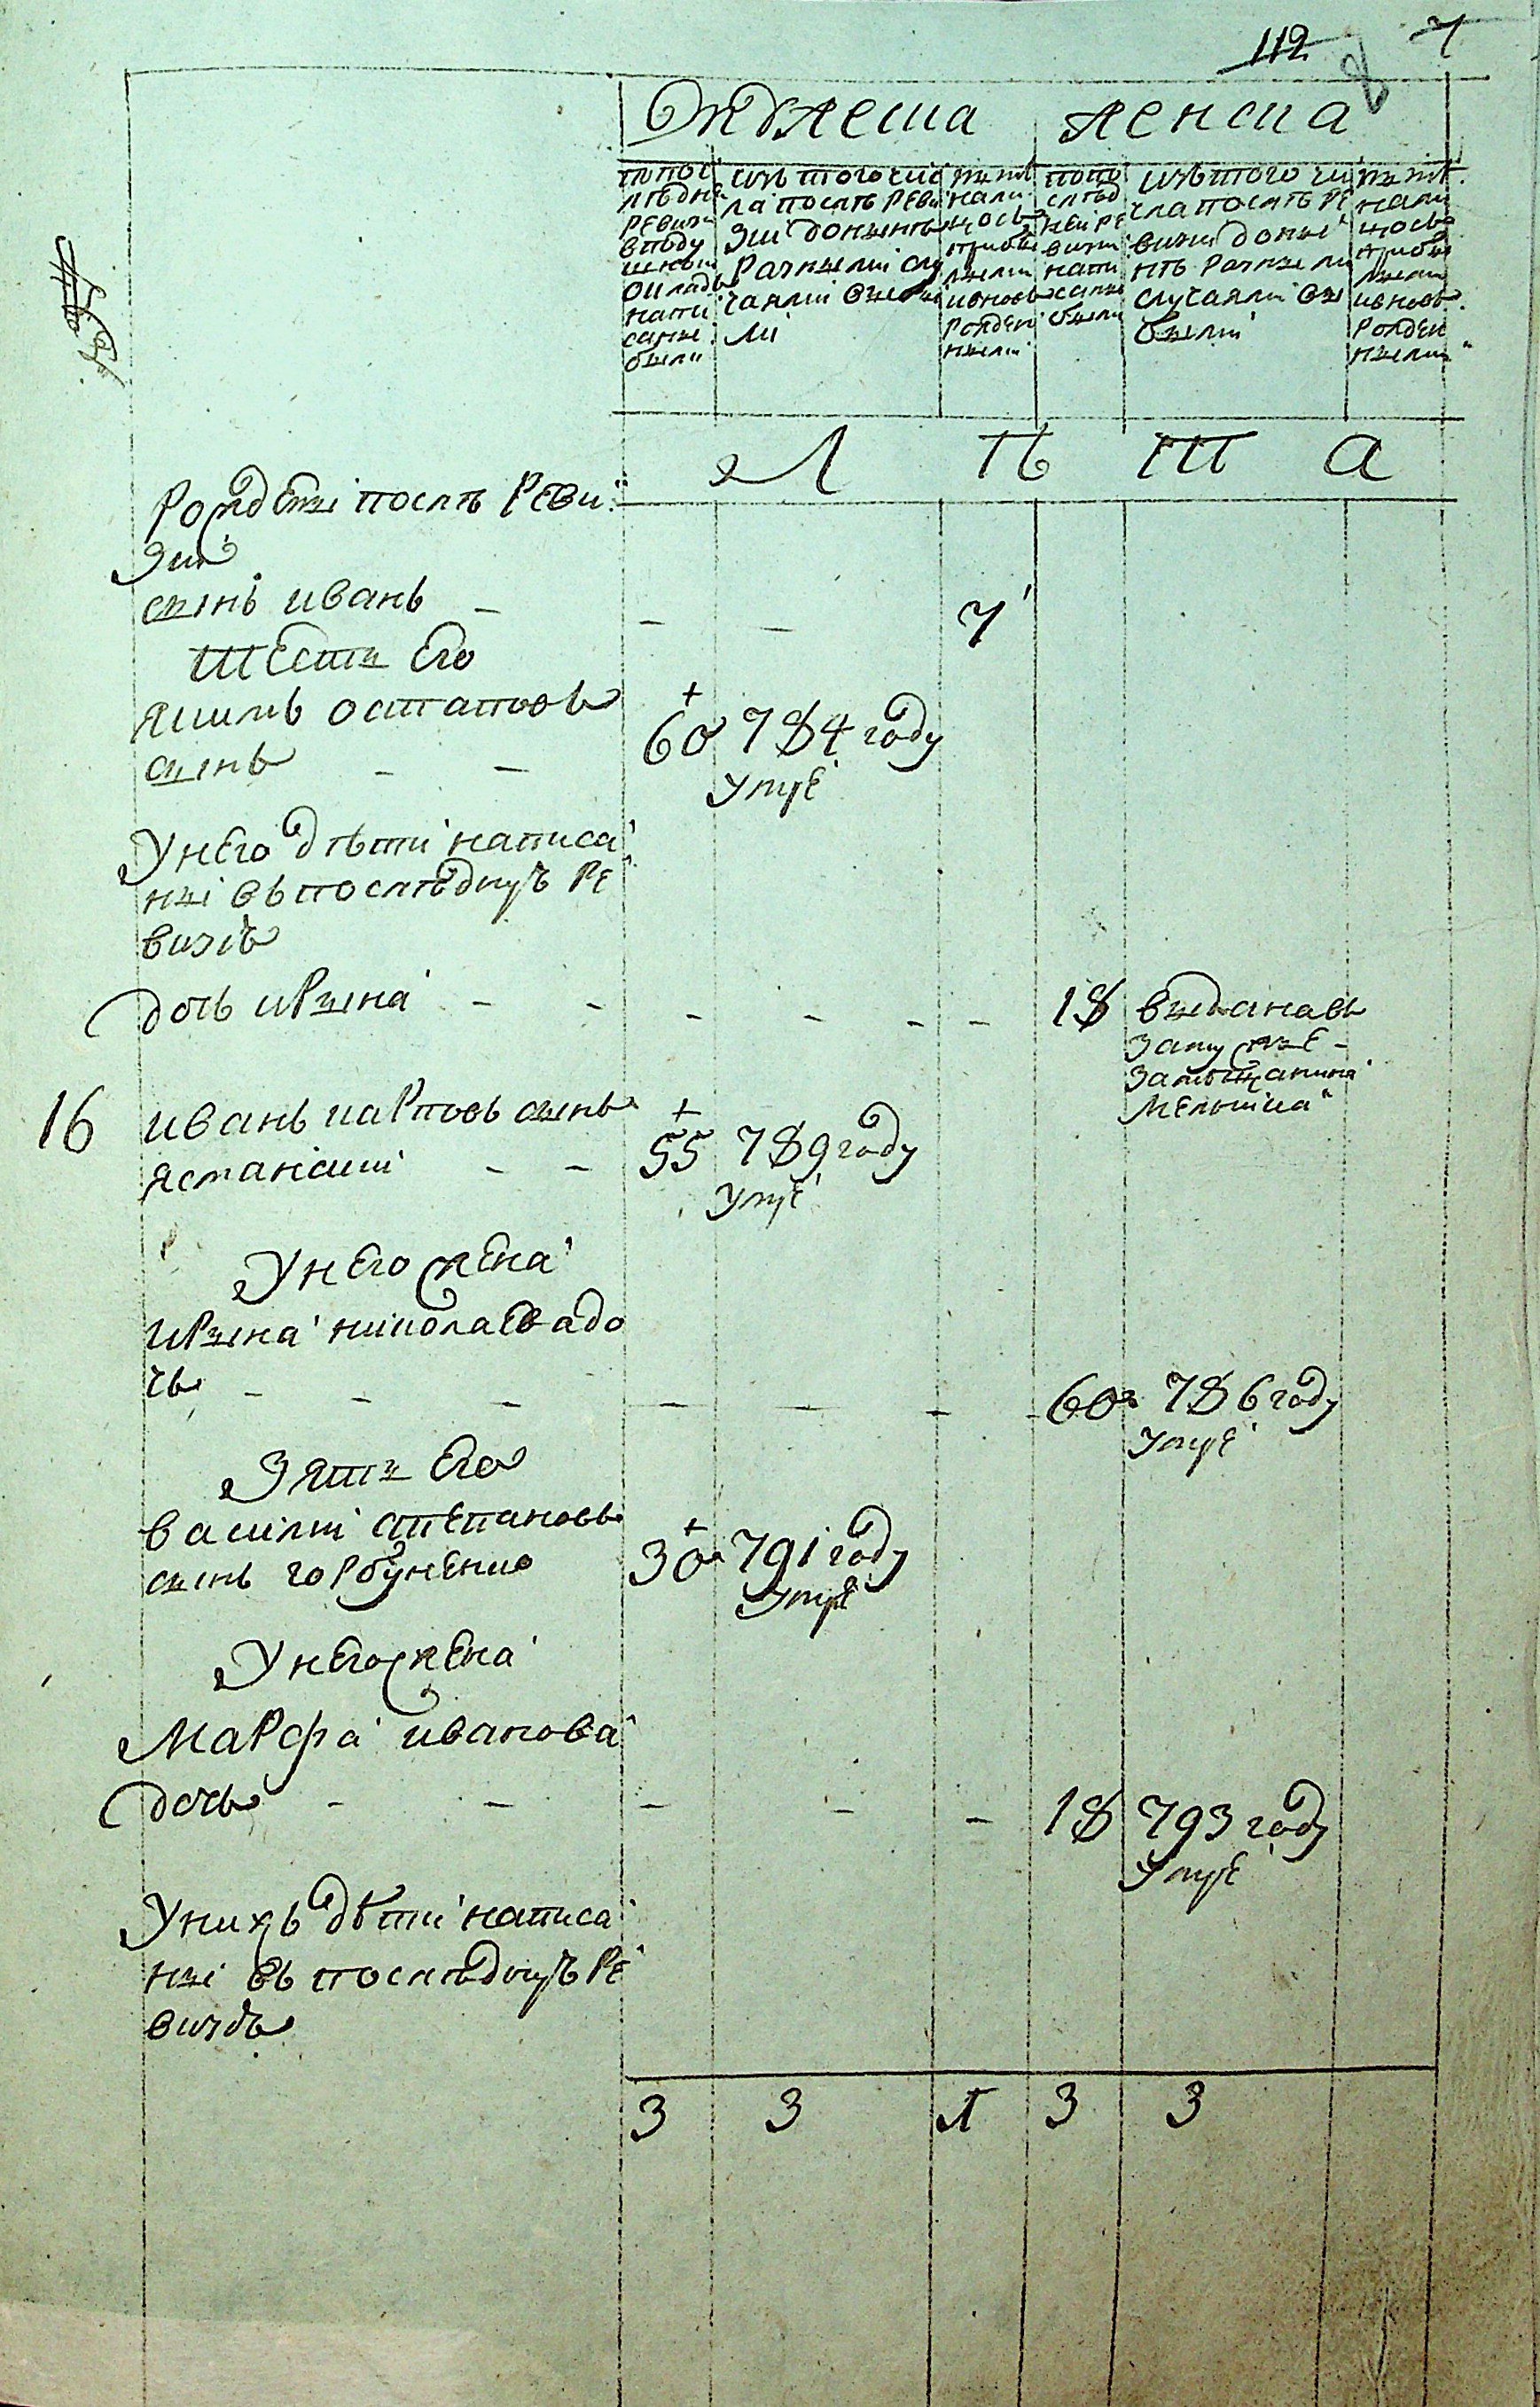 112 7
Мужеска женска
по пос
лѣдне
ревизи
в поду
шном
окладѣ
напи
саные
были
изъ того чис
ла послѣ реви
зiи до нынѣ
разными слу
чаями выбы
ли
ныне
нали
цосъ
прибы
лыми
и вновь
рожден
ными
по по
слѣд
ней ре
визи
напи
саны
были
изъ того чи
сла послѣ ре
визи до ны
нѣ разными
случаями вы
были
ныне
нали
цосъ
прибы
лыми
и вновь
рожден
ными
Л ѣ т а
Рождены послѣ реви
зiи
сынъ иванъ - - - 7
Тесть Его
якимъ остаповъ
сынъ - - 60 784 году
умре
У него дѣти написа
ны въ последнуъ ре
визiъ
дочь ирына - - - - - - 18 выдана въ
замужъе -
за мѣщанина
Мелника
16 иванъ карповъ сынъ
ясманскiи - - 55 789 году
умре
У него жена
ирына николаева до
чь - - - - - - - 60 786 году
умре
Зять Его
василiй степановъ
сынъ горбуненко 30 791 году
умре
У него жена
Марфа иванова
дочь - - - - - 18 793 году
умре
У нихъ дѣти написа
ны въ последнуъ ре
визъ
3 3 1 3 3